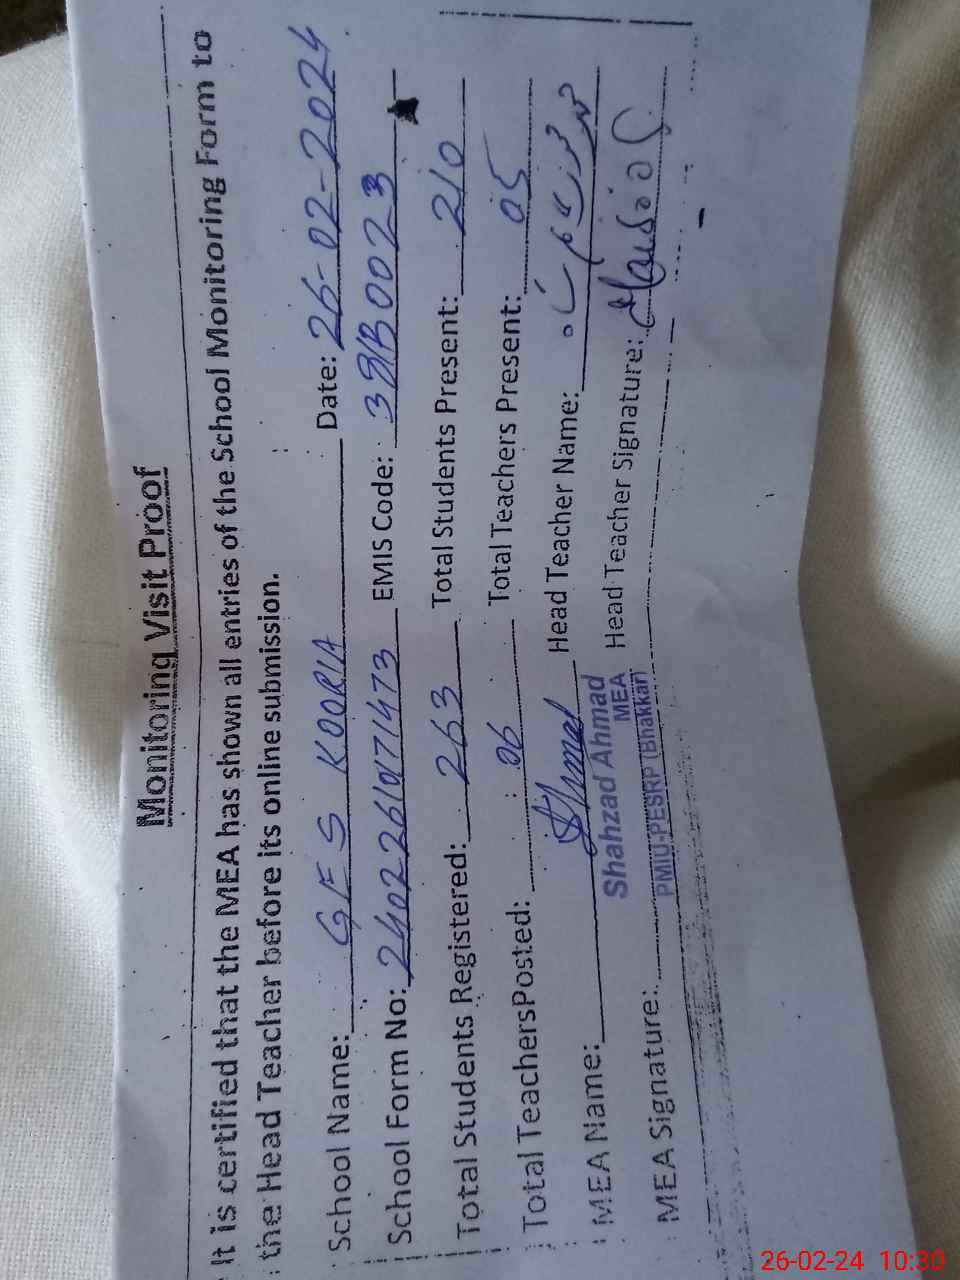 Monitoring Visit Proof
It is certified that the MEA has shown all entries of the School Monitoring Form to
the Head Teacher before its online submission.
School Name: GES KOORIA Date: 26-02-2024
School Form No: EMIS Code:
Total Students Registered: 263 Total Students Present: 210
Total TeachersPosted: 06 Total Teachers Present: 05
MEA Name: Head Teacher Name:
Shahzad Ahmad
MEA
PMIU-PESRP (Bhakkar)
MEA Signature: Head Teacher Signature:
26-02-24 10:30